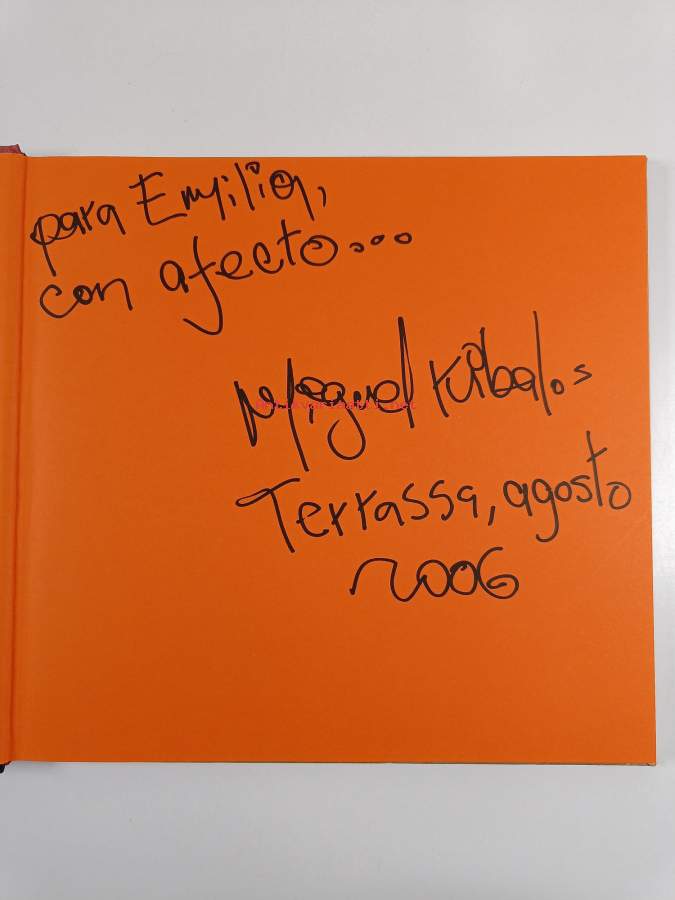 para Emilia,
con afecto...
Miguel
Terrassa, agosto
2006